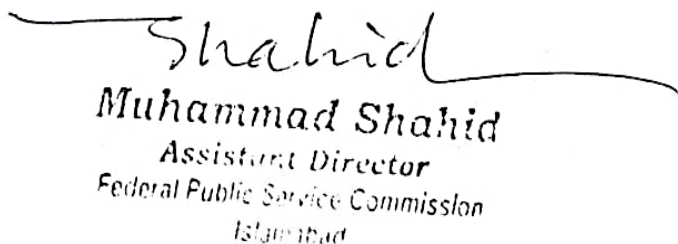 Shahid
Muhammad Shahid
Assistant Director
Federal Public Service Commission
Islamabad